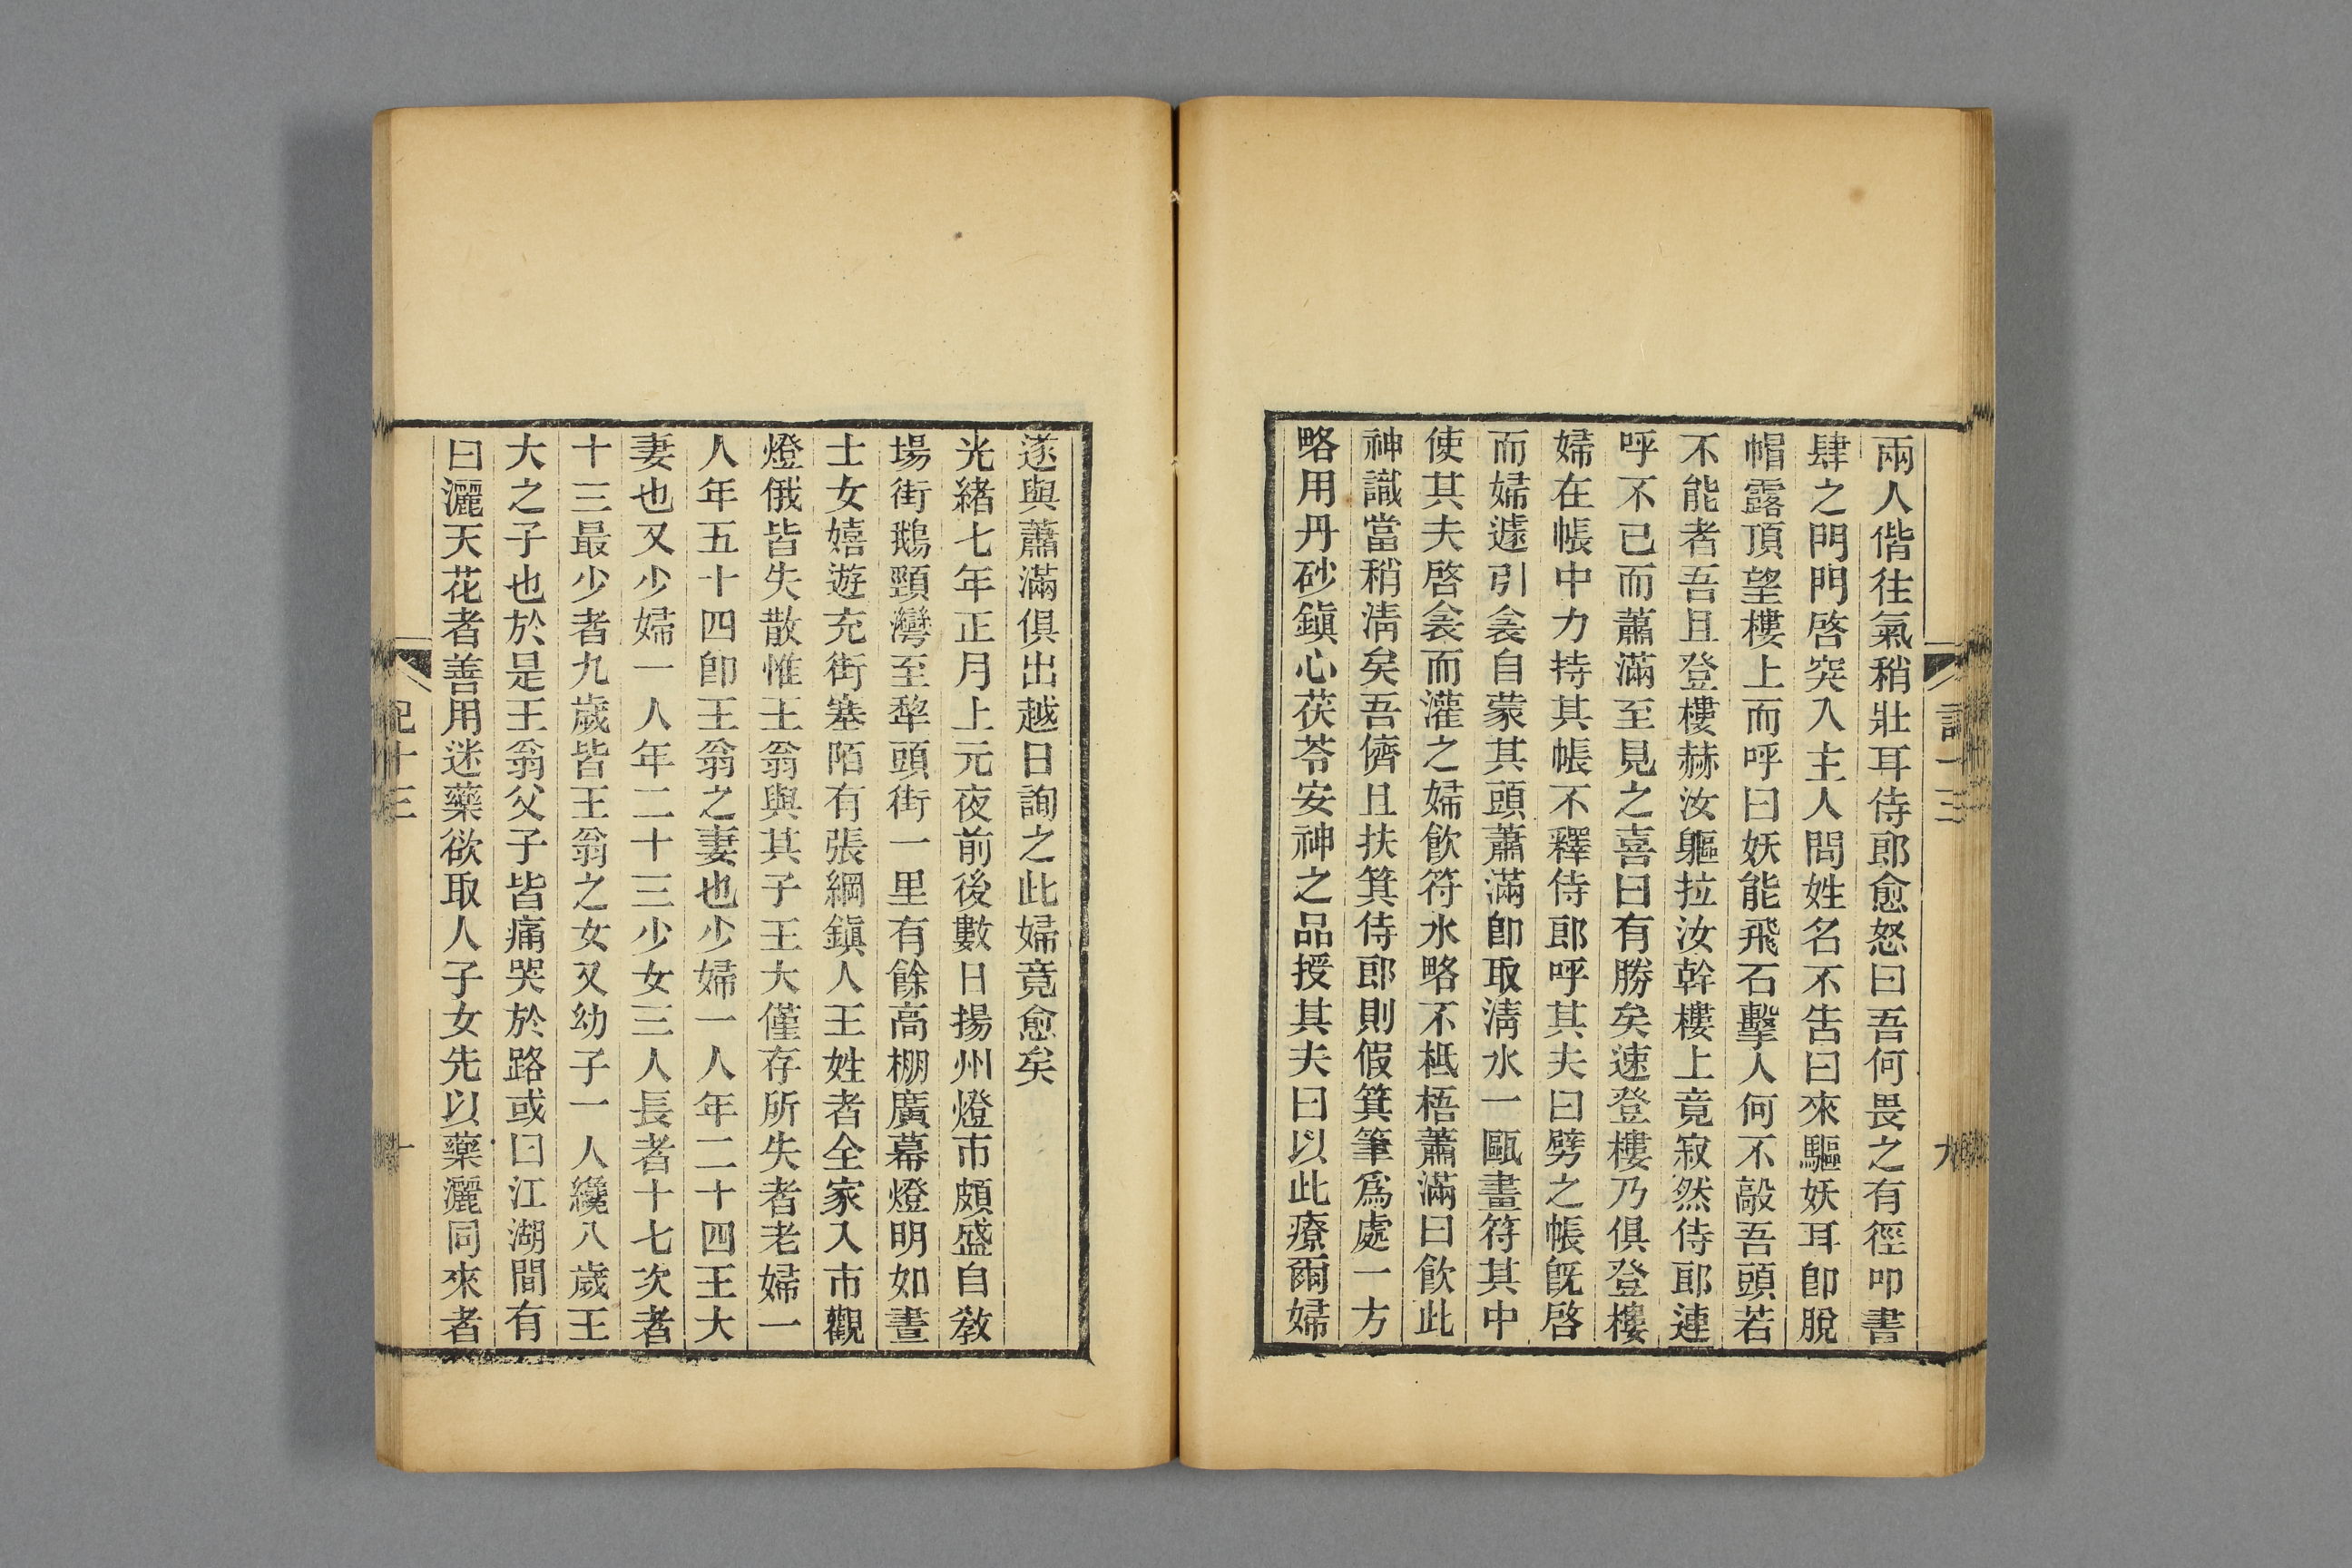 兩人偕往氣稍壯耳侍郎愈怒曰吾何畏之有徑叩書
肆之門門啓突入主人問姓名不告曰來驅妖耳卽脫
帽露頂望樓上而呼曰妖能飛石擊人何不敲吾頭若
不能者吾且登樓赫汝軀拉汝幹樓上竟寂然侍郎連
呼不已而蕭滿至見之喜曰有勝矣速登樓乃俱登樓
婦在帳中力持其帳不釋侍郎呼其夫曰劈之帳旣啓
而婦遽引衾自蒙其頭蕭滿卽取淸水一甌畫符其中
使其夫啓衾而灌之婦飮符水略不柢梧蕭滿曰飮此
神識當稍淸矣吾儕且扶箕侍郎則假箕筆爲處一方
略用丹砂鎭心茯苓安神之品授其夫曰以此療爾婦
遂與蕭滿俱出越日詢之此婦竟愈矣
光緒七年正月上元夜前後數日揚州燈市頗盛自敎
場街鵝頸灣至犂頭街一里有餘高棚廣幕燈明如晝
士女嬉遊充街塞陌有張綱鎭人王姓者全家入市觀
燈俄皆失散惟王翁與其子王大僅存所失者老婦一
人年五十四卽王翁之妻也少婦一人年二十四王大
妻也又少婦一人年二十三少女三人長者十七次者
十三最少者九歲皆王翁之女又幼子一人纔八歲王
大之子也於是王翁父子皆痛哭於路或曰江湖間有
曰灑天花者善用迷藥欲取人子女先以藥灑同來者
記十三
十